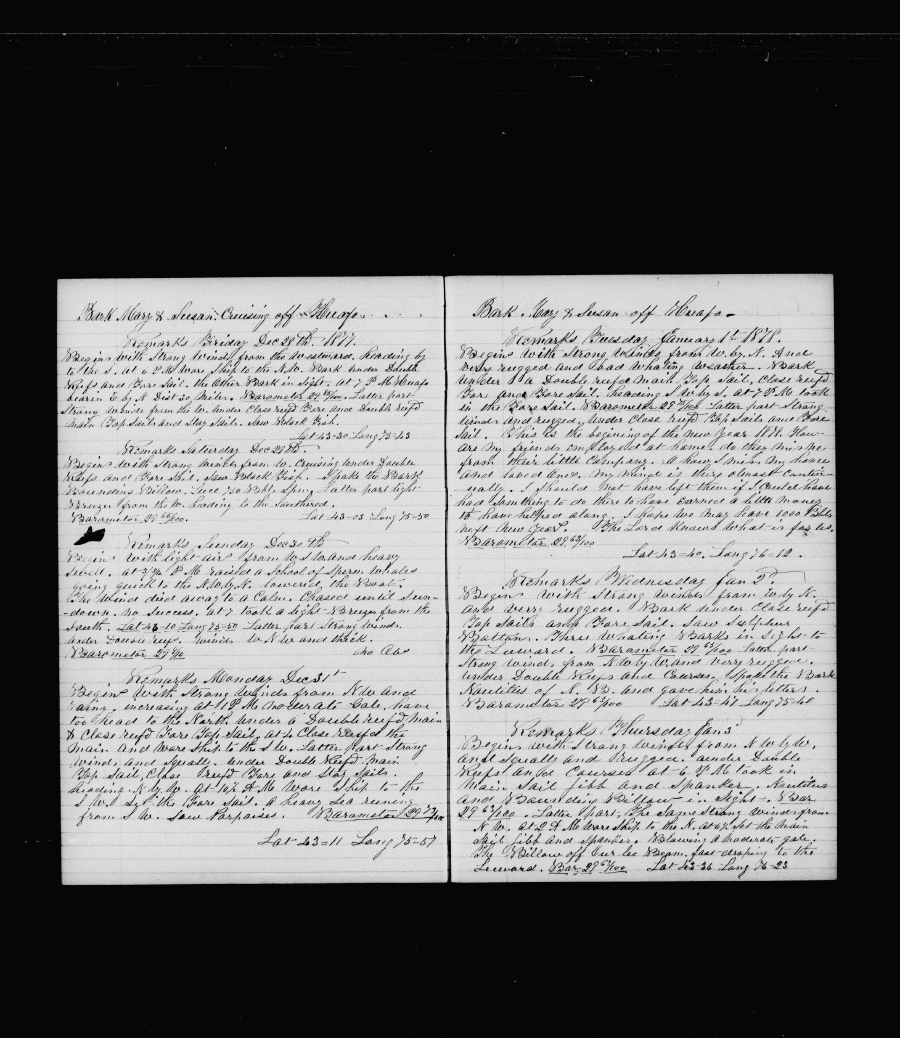 Bark Mary & Susan Cruising off Huafo
Remarks Friday Dec 28th 1877.
Begins with Strong Winds from the Westward. heading by
to the S. at 6 P M Wore Ship to the N.W. Bark under Double
Reefs and Fore Sail. the other Bark in Sight. at 7 P M Huafo
bearin by N Dist 30 Miles. Barometer 29 /100. Latter part
Strong winds from the W. under Close reef'd Fore and Double reef'd
Main Top Sails and Stay Sails. Saw Black Fish.
Lat 43-30 Long 75-43
Remarks Saturday Dec 29th
Begins with Strong Winds from W. Cruising under Double
Reefs and Fore Sail. Saw Black Fish. Spoke the Bark
Bounding Billow. Bbls Latter part light
Breezes from the W. heading to the Southered.
Barometer 29 /100. Lat 43-03 Long 75-50
Remarks Sunday Dec 30th
Begins with light air from S W and heavy
Swell. at P M raised a School of Sperm Whales
going quick to the N.W. by N. lowered the Boat.
The Wind died away to a Calm. Chased until Sun-
-down. no Success. at 7 took a light Breeze from the
South. Lat 43-10 Long 75-50 Latter part Strong winds.
under Double reefs. Winds W N W and thick.
Barometer 29 no Obs
Remarks Monday Dec 31st
Begins With Strong Winds from N W and
rains, increasing at 11 P M Moderate Gale, have
too head to the North under a Double reef'd Main
& Close reef'd Fore Top Sail, at 4 Close reef'd the
Main. and Wore Ship to the S W. Latter Part Strong
Winds and Squally. under Double Reef'd Main
Top Sail, Close reef'd Fore and Stay Sails.
heading N by W. At 10 1/2 A M Wore Ship to the
S W. Set the Fore Sail. A heavy Sea running
from S W. Saw Porpoises. Barometer 29 73/100
Lat 43=11 Long 75=57
Bark Mary & Susan off Huafo-
Remarks Tuesday January 1st 1878.
Begins With Strong Winds from W. by N. And
very rugged and bad whaling weather. Bark
under a Double reef'd Main Top Sail, Close reef'd
Fore and Fore Sail. heading S W by S. at 7 P M took
in the Fore Sail. Barometer 29 /100 Latter part Strong
Winds and rugged, under Close reef'd Top Sails and Fore
Sail. This is the begining of the New Year 1878. How
are my friends employed at home. do they miss me
from their little Company. At home, I mean my home
and loved ones. My mind is their almost Contin-
ually. I Should not have left them if I Could have
had Something to do there to have earned a little money
to have helped along. I hope we may have 1000 Bbls
next New Year. The Lord Knows what is for us.
Barometer 29 62/100
Lat 43-40. Long 76-12.
Remarks Wednesday Jan 2d.
Begins With Strong winds from W. by N.
and very rugged. Bark under Close reef'd
Top Sails and Fore Sail. Saw Sulphur
Bottom. Three Whaling Barks in Sight to
the Leeward. Barometer 29 65/100 Latter part
Strong winds from N.W. by W. and very rugged.
under Double Reefs and Courses. Spoke the Bark
Nautilus of N. B. and gave him his letters.
Barometer 29 6/100 Lat 43-41 Long 75-40
Remarks Thursday Jan 3d
Begins with Strong winds from N. W. by W.
and Squally and rugged. under Double
Reefs and Courses at 6 P M took in
Main Sail jibb and Spanker. Nautilus
and Bounding Billow in Sight. Bar
29 67/100. Latter part, The Same Strong winds from
N. W. at 2 A M Wore Ship to the N. at 6 1/2 Set the Main
Sail jibb and Spanker. Blowing a Moderate gale.
The Billow off Our lee Beam, fast droping to the
Leeward. Bar 29 6/100 Lat 43-36 Long 76-23